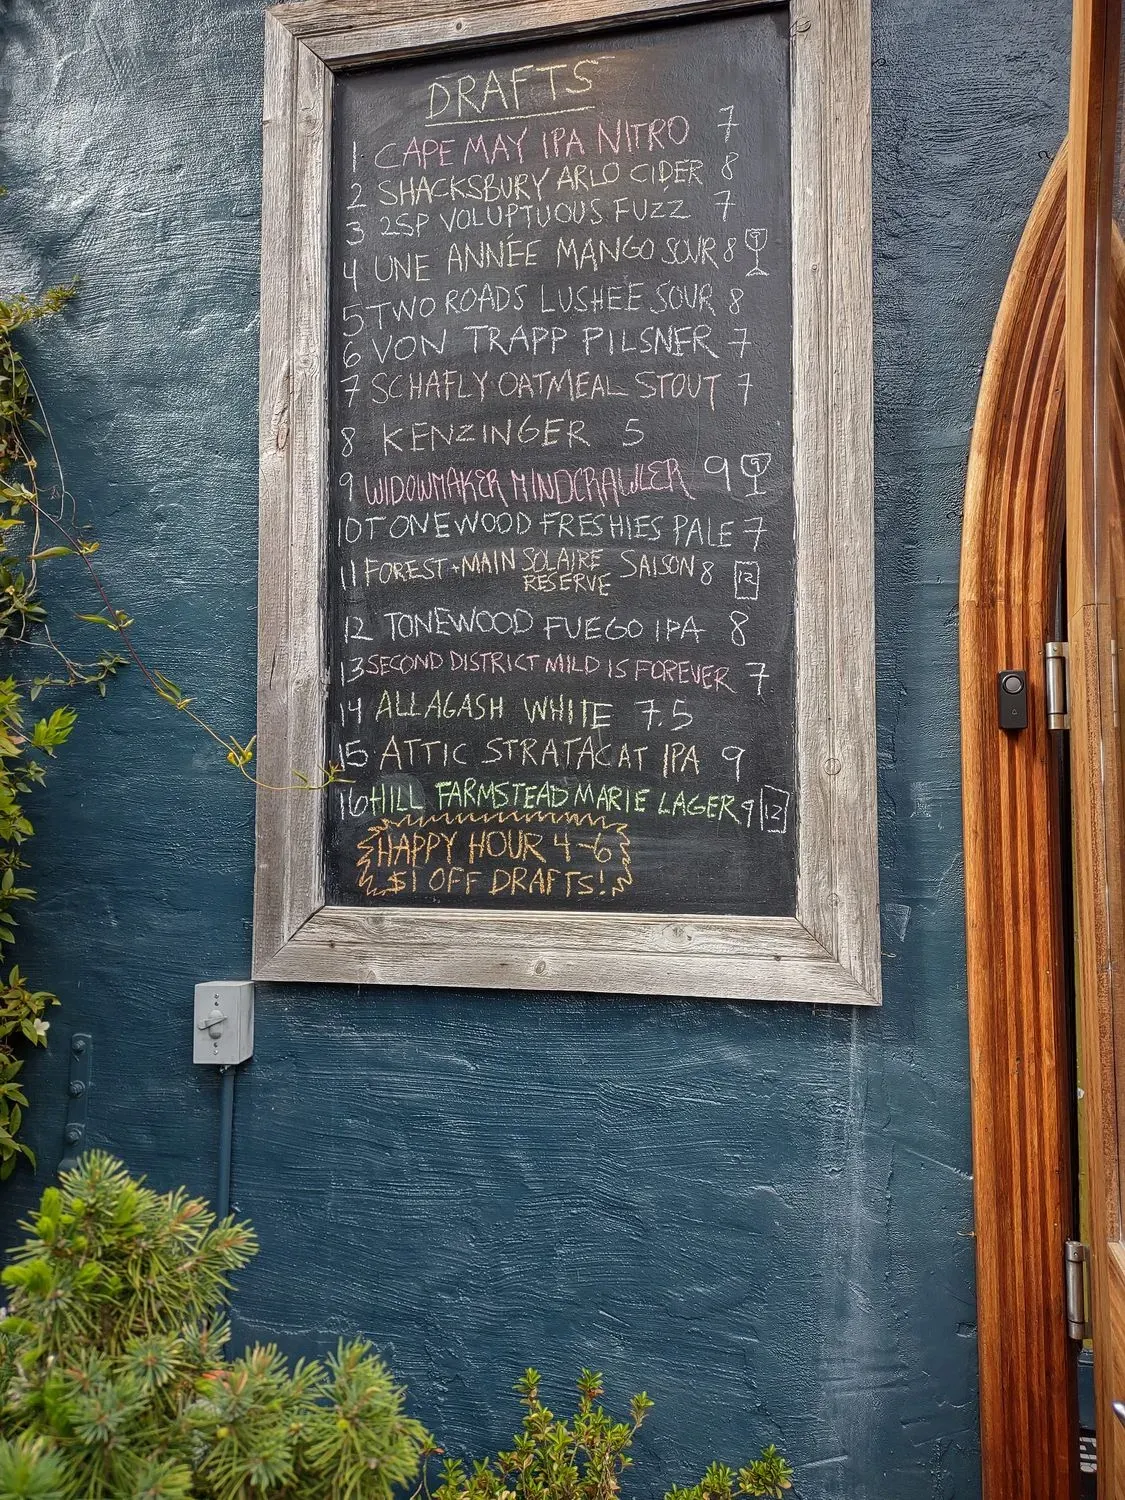 DRAFTS
1 CAPE MAY IPA NITRO 7
2 SHACKSBURY ARLO CIDER 8
3 2SP VOLUPTUOUS FUZZ 7
4 UNE ANNÉE MANGO SOUR 8 9
5 TWO ROADS LUSHEE SOUR 8
6 VON TRAPP PILSNER 7
7 SCHAFLY OATMEAL STOUT 7
8 KENZINGER 5
9 WIDOWMAKER MINDCRAWLER 9 9
10 TONEWOOD FRESHIES PALE 7
11 FOREST + MAIN SOLAIRE RESERVE SAISON 8 12
12 TONEWOOD FUEGO IPA 8
13 SECOND DISTRICT MILD IS FOREVER 7
14 ALLAGASH WHITE 7.5
15 ATTIC STRATACAT IPA 9
16 HILL FARMSTEAD MARIE LAGER 9 12
HAPPY HOUR 4-6
$1 OFF DRAFTS!